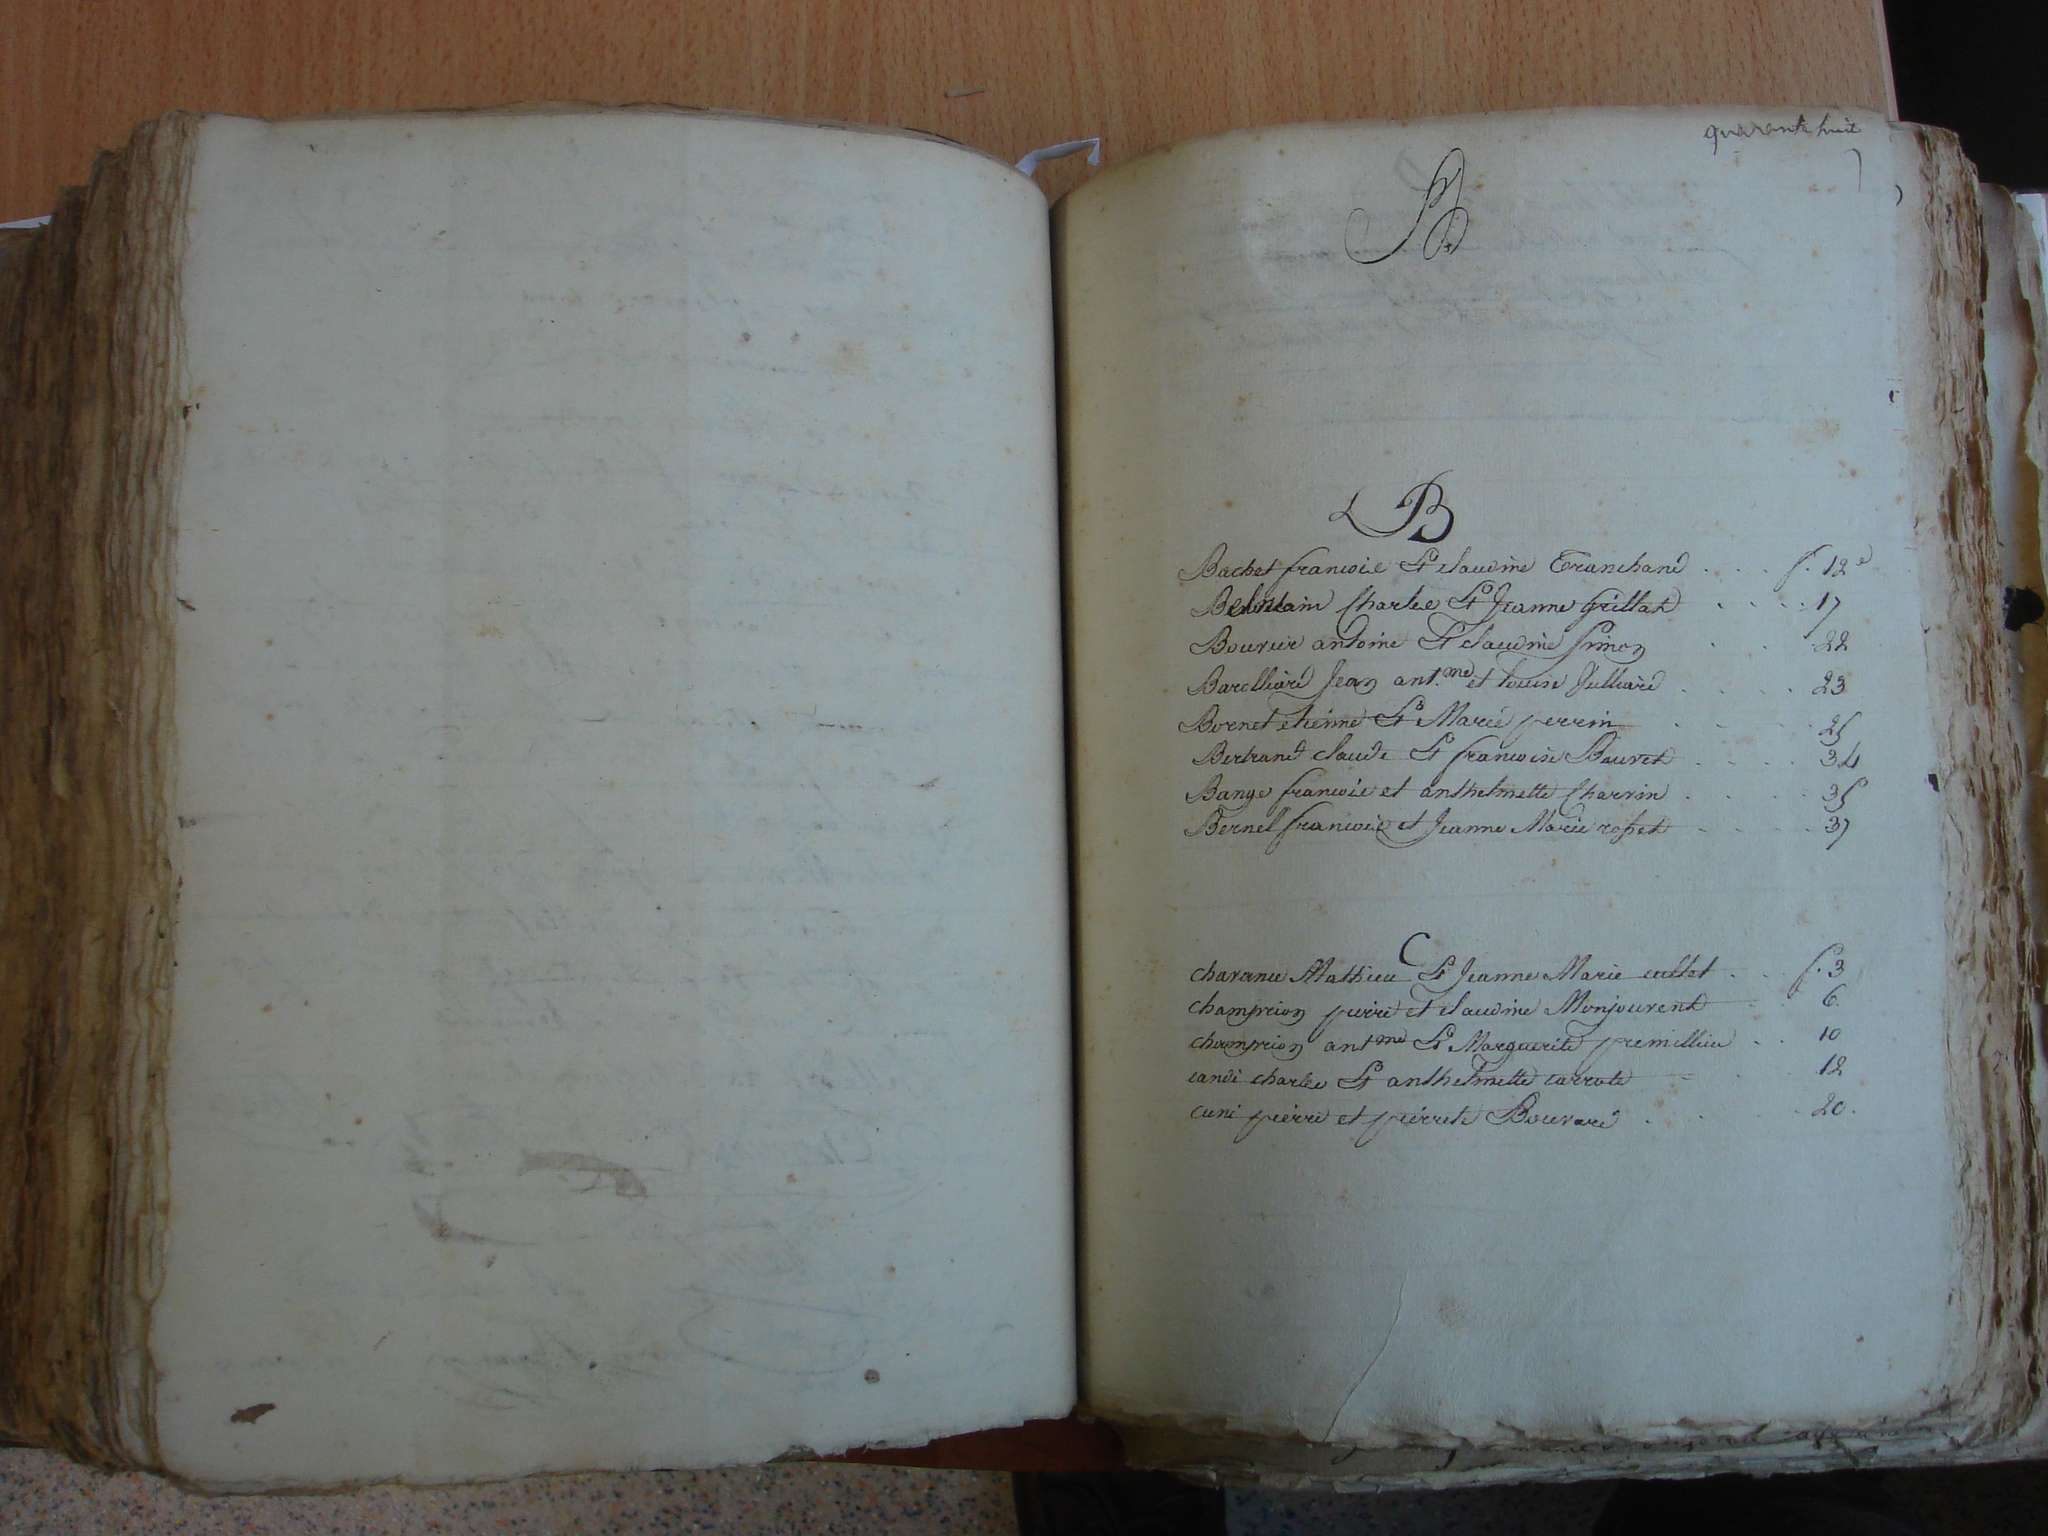 quarante huit
A
B
Bachet francois Et claudine Tranchand . . . f. 12e
Charles Et Jeanne Grillat . . . . 17
Bouvier antoine Et claudine Simon . . . 22
Barolliard Jean ant.me et Louise Julliard . . . . 23
Bornet etienne Et Marie perrin . . . 25
Bertrand claude Et francoise Bouvet . . . . 34
Bange francois et anthelmette Charvin . . . . 35
Bernel francois et Jeanne Marie rosset . . . . 37
C
charvin Mathieu Et Jeanne Marie cullet . . . f. 3
champion pierre et claudine Monjouvent . 6
champion antme Et Marguerite premillieu . . 10
candi charles Et anthelmette carrote . . 12
cuni pierre et pierrete Bouvard . . . 20.